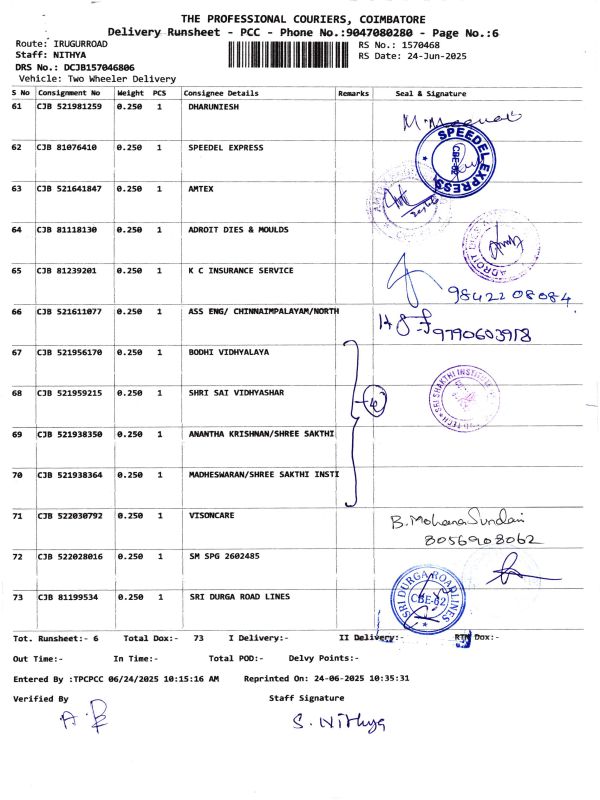 THE PROFESSIONAL COURIERS, COIMBATORE
Delivery Runsheet - PCC - Phone No.:9047080280 - Page No.:6
Route: IRUGURROAD
Staff: NITHYA
DRS No.: DCJB157046806
Vehicle: Two Wheeler Delivery
RS No.: 1570468
RS Date: 24-Jun-2025
S No Consignment No Weight PCS Consignee Details Remarks Seal & Signature
61 CJB 521981259 0.250 1 DHARUNIESH
62 CJB 81076410 0.250 1 SPEEDEL EXPRESS SPEEDEL EXPRESS CBE-62
63 CJB 521641847 0.250 1 AMTEX
64 CJB 81118130 0.250 1 ADROIT DIES & MOULDS
65 CJB 81239201 0.250 1 K C INSURANCE SERVICE 9842208084
66 CJB 521611077 0.250 1 ASS ENG/ CHINNAIMPALAYAM/NORTH 9790603918
67 CJB 521956170 0.250 1 BODHI VIDHYALAYA
68 CJB 521959215 0.250 1 SHRI SAI VIDHYASHAR
69 CJB 521938350 0.250 1 ANANTHA KRISHNAN/SHREE SAKTHI
70 CJB 521938364 0.250 1 MADHESWARAN/SHREE SAKTHI INSTI
71 CJB 522030792 0.250 1 VISONCARE B. Mohana Sundari
8056908062
72 CJB 522028016 0.250 1 SM SPG 2602485
73 CJB 81199534 0.250 1 SRI DURGA ROAD LINES SRI DURGA ROAD LINES CBE-62
Tot. Runsheet:- 6 Total Dox:- 73 I Delivery:- II Delivery:- RTN Dox:-
Out Time:- In Time:- Total POD:- Delvy Points:-
Entered By :TPCPCC 06/24/2025 10:15:16 AM Reprinted On: 24-06-2025 10:35:31
Verified By Staff Signature
S. Nithya